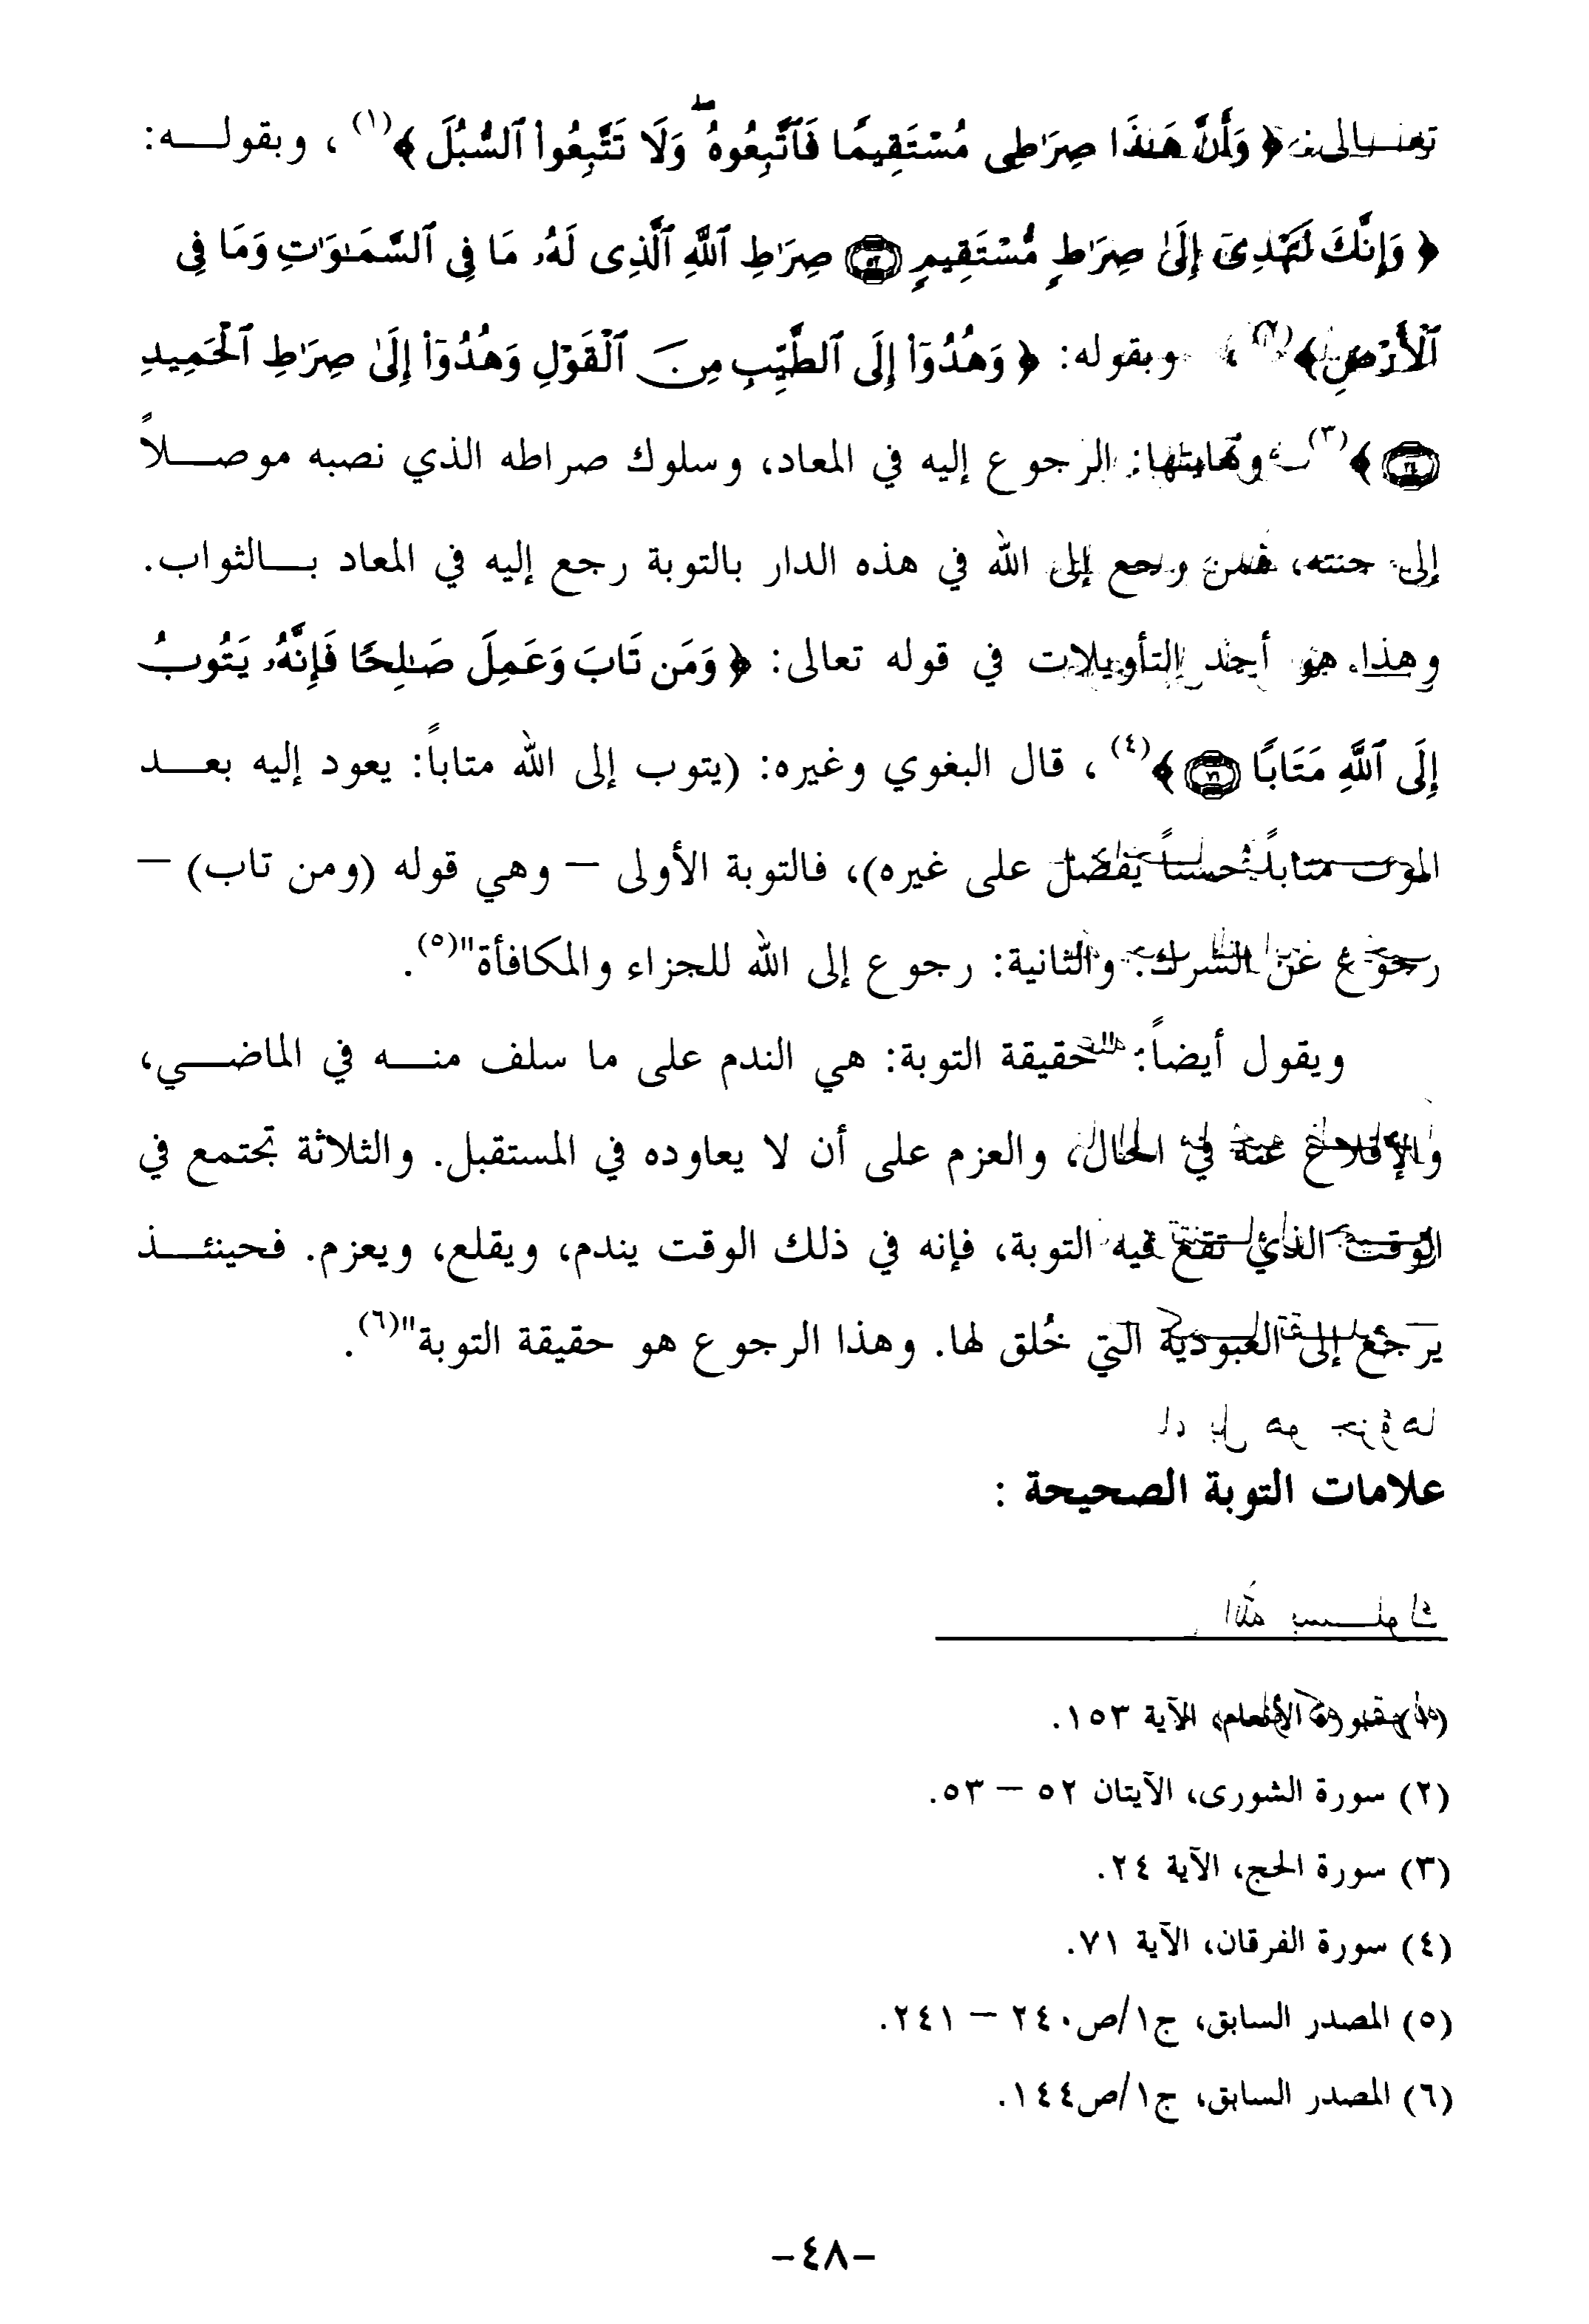 تعالى: ﴿ وَأَنَّ هَـٰذَا صِرَٰطِى مُسْتَقِيمًا فَٱتَّبِعُوهُ ۖ وَلَا تَتَّبِعُوا۟ ٱلسُّبُلَ ﴾(١) ، وبقولـــه:
﴿ وَإِنَّكَ لَتَهْدِىٓ إِلَىٰ صِرَٰطٍ مُّسْتَقِيمٍ ۝٥٢ صِرَٰطِ ٱللَّهِ ٱلَّذِى لَهُۥ مَا فِى ٱلسَّمَـٰوَٰتِ وَمَا فِى
ٱلْأَرْضِ﴾(٢) ، وبقوله: ﴿ وَهُدُوٓا۟ إِلَى ٱلطَّيِّبِ مِنَ ٱلْقَوْلِ وَهُدُوٓا۟ إِلَىٰ صِرَٰطِ ٱلْحَمِيدِ
۝٢٤ ﴾(٣) ونهايتها: الرجوع إليه في المعاد، وسلوك صراطه الذي نصبه موصــلاً
إلى جنته، فمن رجع إلى الله في هذه الدار بالتوبة رجع إليه في المعاد بــالثواب.
وهذا هو أحد التأويلات في قوله تعالى: ﴿ وَمَن تَابَ وَعَمِلَ صَـٰلِحًا فَإِنَّهُۥ يَتُوبُ
إِلَى ٱللَّهِ مَتَابًا ۝٧١ ﴾(٤) ، قال البغوي وغيره: (يتوب إلى الله متاباً: يعود إليه بعـــد
الموت متاباً حسناً يفضل على غيره)، فالتوبة الأولى – وهي قوله (ومن تاب) –
رجوع عن الشرك. والثانية: رجوع إلى الله للجزاء والمكافأة"(٥).
ويقول أيضاً: "حقيقة التوبة: هي الندم على ما سلف منـــه في الماضـــي،
والإقلاع عنه في الحال، والعزم على أن لا يعاوده في المستقبل. والثلاثة تجتمع في
الوقت الذي تقع فيه التوبة، فإنه في ذلك الوقت يندم، ويقلع، ويعزم. فحينئـــذ
يرجع إلى العبودية التي خُلق لها. وهذا الرجوع هو حقيقة التوبة"(٦).
علامات التوبة الصحيحة :
(١) سورة الأنعام، الآية ١٥٣.
(٢) سورة الشورى، الآيتان ٥٢ – ٥٣.
(٣) سورة الحج، الآية ٢٤.
(٤) سورة الفرقان، الآية ٧١.
(٥) المصدر السابق، ج١/ص٢٤٠ – ٢٤١.
(٦) المصدر السابق، ج١/ص١٤٤.
-٤٨-